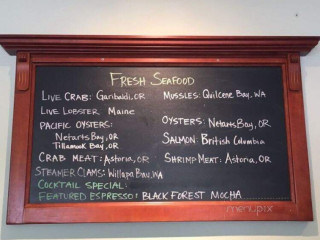 FRESH SEAFOOD
LIVE CRAB: Garibaldi, OR
MUSSLES: Quilcene Bay, WA
LIVE LOBSTER Maine
PACIFIC OYSTERS:
Netarts Bay, OR
Tillamook Bay, OR
OYSTERS: Netarts Bay, OR
SALMON: British Columbia
CRAB MEAT: Astoria, OR
SHRIMP MEAT: Astoria, OR
STEAMER CLAMS: Willapa Bay, WA
COCKTAIL SPECIAL:
FEATURED ESPRESSO: BLACK FOREST MOCHA
menupix